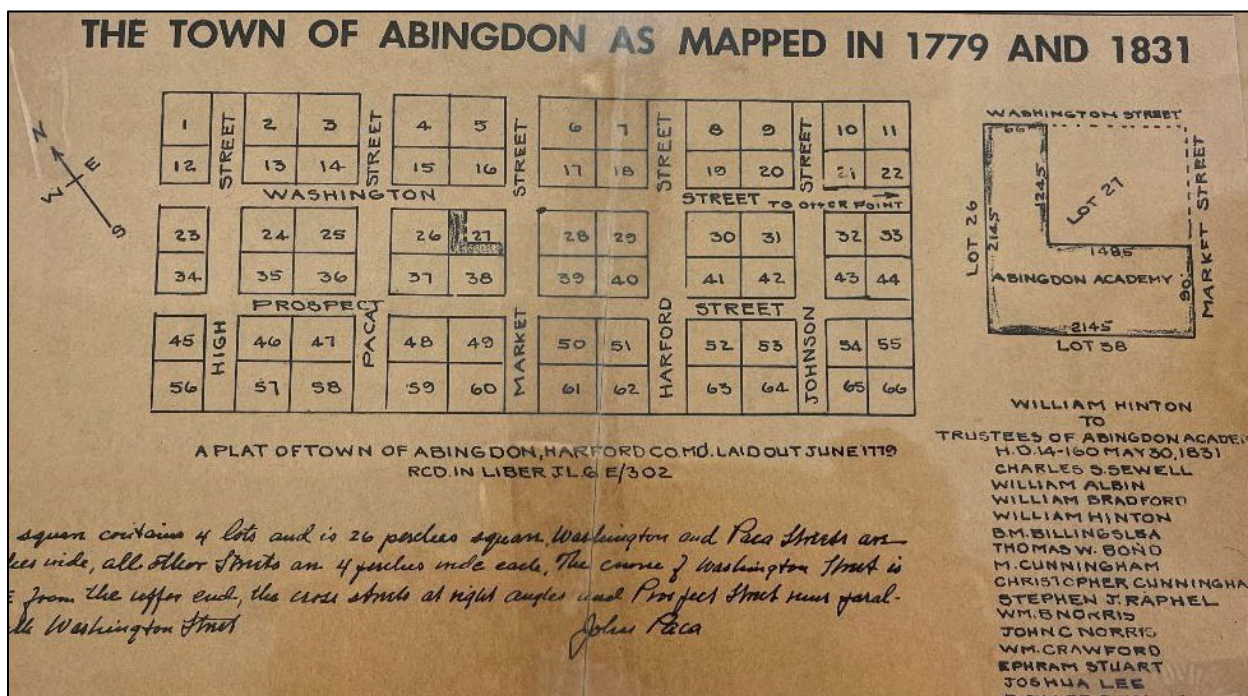 THE TOWN OF ABINGDON AS MAPPED IN 1779 AND 1831
N
E
W
S
1 STREET 2 3 STREET 4 5 STREET 6 7 STREET 8 9 STREET 10 11
12 13 14 15 16 17 18 19 20 21 22
WASHINGTON STREET TO OTTER POINT
23 24 25 26 27 28 29 30 31 32 33
34 35 36 37 38 39 40 41 42 43 44
PROSPECT STREET
45 HIGH 46 47 PACA 48 49 MARKET 50 51 HARFORD 52 53 JOHNSON 54 55
56 57 58 59 60 61 62 63 64 65 66
WASHINGTON STREET
66
LOT 26
2145
1245
LOT 27
MARKET STREET
1485
ABINGDON ACADEMY
90
2145
LOT 38
A PLAT OF TOWN OF ABINGDON, HARFORD CO. MD. LAID OUT JUNE 1779
RCD. IN LIBER J.L.G E/302
square contains 4 lots and is 26 perches square, Washington and Paca Streets are
wide, all other Streets are 4 perches wide each, The course of Washington Street is
E from the upper end, the cross streets at right angles and Prospect Street runs paral-
Washington Street
John Paca
WILLIAM HINTON
TO
TRUSTEES OF ABINGDON ACADE
H.D. 14-160 MAY 30, 1831
CHARLES S. SEWELL
WILLIAM ALBIN
WILLIAM BRADFORD
WILLIAM HINTON
B.M. BILLINGSLEA
THOMAS W. BOND
M. CUNNINGHAM
CHRISTOPHER CUNNINGHA
STEPHEN J. RAPHEL
WM. B NORRIS
JOHN C NORRIS
WM. CRAWFORD
EPHRAM STUART
JOSHUA LEE